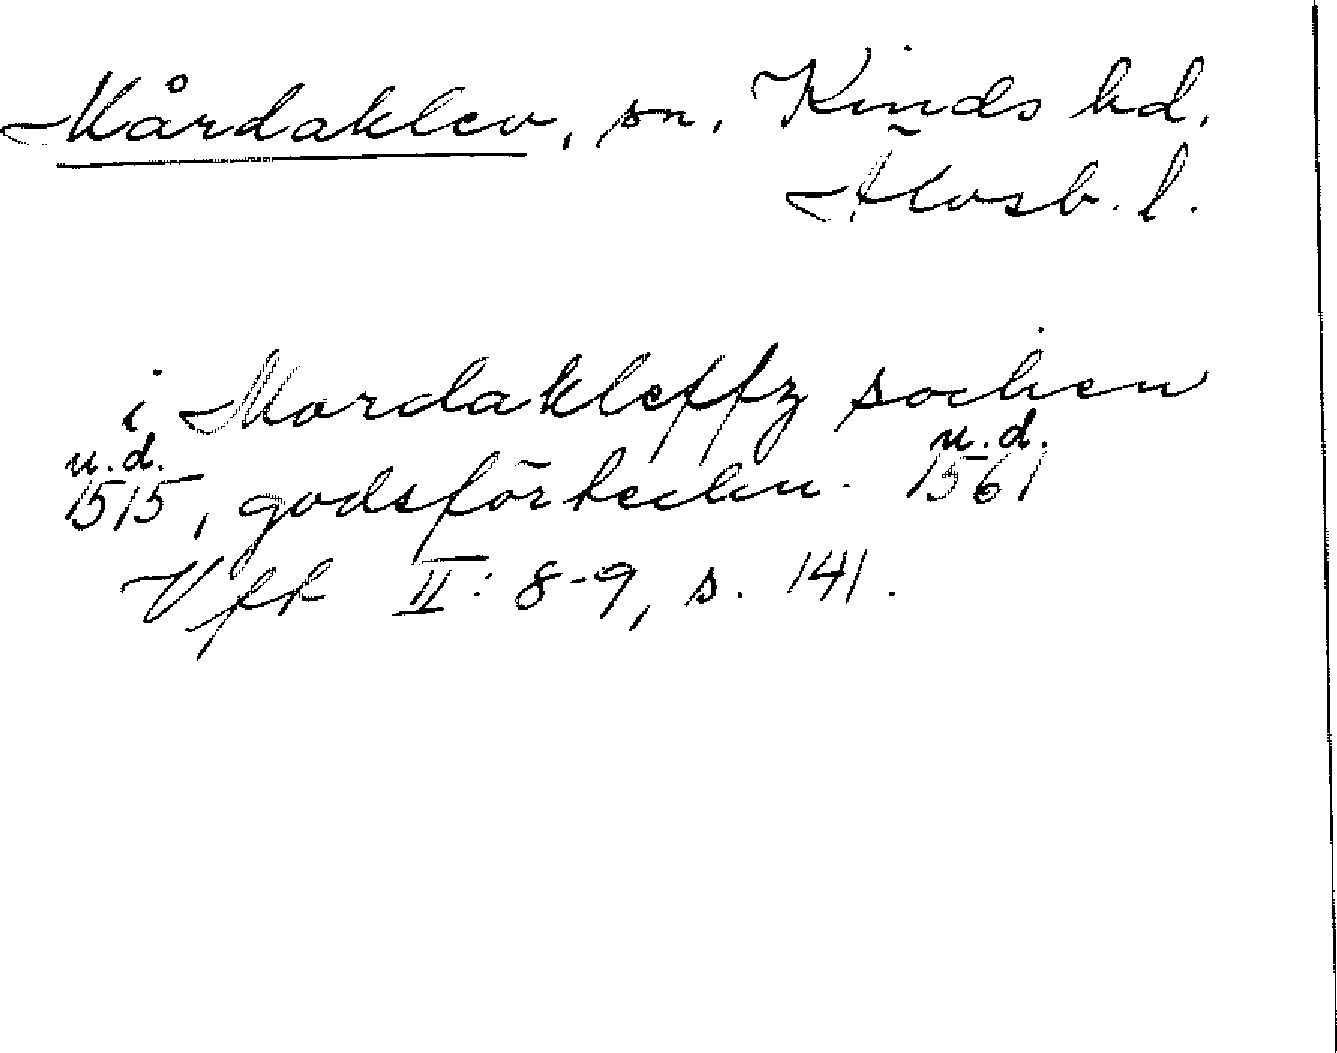 Mårdaklev, sn. Kinds hd.
Älvsb. l.
i Mordakleffz sochen
u.d. u.d.
1515, godsförteckn. 1561
Vfk II: 8-9, s. 141.